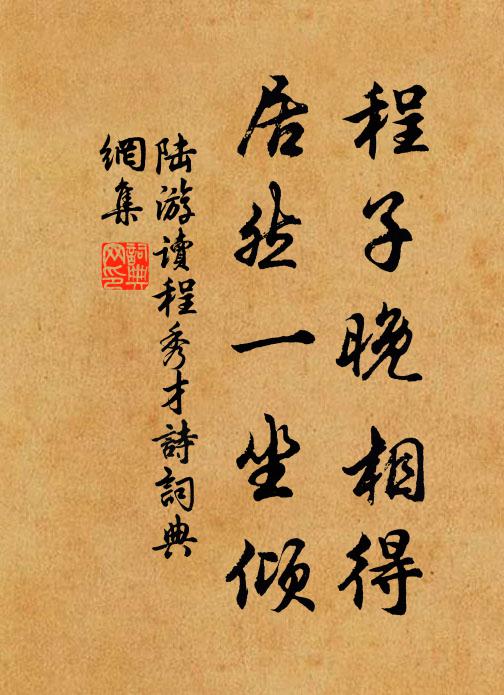 程子晚相得
居然一坐傾
陆游讀程秀才詩詞典
網集
詞典网印